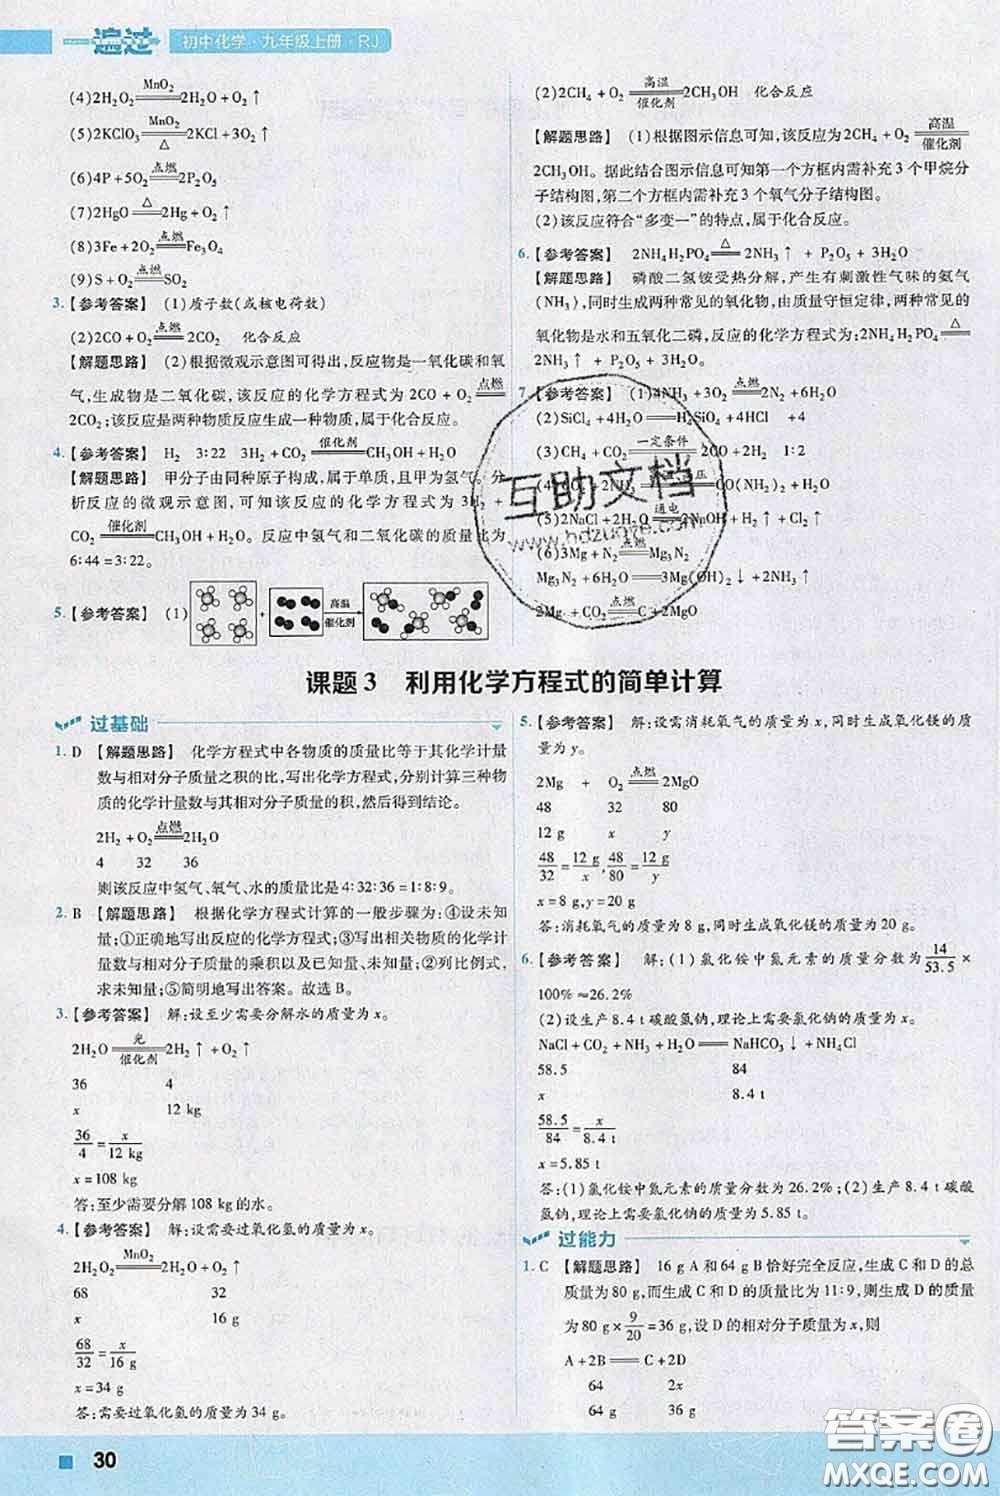 一遍过 初中化学·九年级上册·RJ
(4)2H₂O₂ =MnO₂= 2H₂O + O₂↑
(5)2KClO₃ =MnO₂/△= 2KCl + 3O₂↑
(6)4P + 5O₂ =点燃= 2P₂O₅
(7)2HgO =△= 2Hg + O₂↑
(8)3Fe + 2O₂ =点燃= Fe₃O₄
(9)S + O₂ =点燃= SO₂
3.【参考答案】 (1)质子数(或核电荷数)
(2)2CO + O₂ =点燃= 2CO₂ 化合反应
【解题思路】 (2)根据微观示意图可得出,反应物是一氧化碳和氧
气,生成物是二氧化碳,该反应的化学方程式为 2CO + O₂ =点燃=
2CO₂;该反应是两种物质反应生成一种物质,属于化合反应。
4.【参考答案】 H₂ 3:22 3H₂ + CO₂ =催化剂= CH₃OH + H₂O
【解题思路】 甲分子由同种原子构成,属于单质,且其为氢气。分
析反应的微观示意图,可知该反应的化学方程式为 3H₂ +
CO₂ =催化剂= CH₃OH + H₂O。反应中氢气和二氧化碳的质量比为
6:44 = 3:22。
5.【参考答案】 (1) + 高温 催化剂
(2)2CH₄ + O₂ =高温/催化剂= 2CH₃OH 化合反应
【解题思路】 (1)根据图示信息可知,该反应为2CH₄ + O₂ =高温/催化剂=
2CH₃OH。据此结合图示信息可知第一个方框内需补充 3 个甲烷分
子结构图,第二个方框内需补充 3 个氧气分子结构图。
(2)该反应符合“多变一”的特点,属于化合反应。
6.【参考答案】 2NH₄H₂PO₄ =△= 2NH₃↑ + P₂O₅ + 3H₂O
【解题思路】 磷酸二氢铵受热分解,产生有刺激性气味的氨气
(NH₃),同时生成两种常见的氧化物,由质量守恒定律,两种常见的
氧化物是水和五氧化二磷,反应的化学方程式为:2NH₄H₂PO₄ =△=
2NH₃↑ + P₂O₅ + 3H₂O。
7.【参考答案】 (1)4NH₃ + 3O₂ =点燃=
(2)SiCl₄ + 4H₂O = H₄SiO₄ + 4HCl +4
(3)CH₄ + CO₂ =一定条件= 2CO + 2H₂
CO(NH₂)₂ + H₂O
(5)2NaCl + 2H₂O =通电= 2NaOH + H₂↑ + Cl₂↑
(6)3Mg + N₂ =点燃= Mg₃N₂
Mg₃N₂ + 6H₂O = 3Mg(OH)₂↓ + 2NH₃↑
2Mg + CO₂ =点燃= C + 2MgO
互助文档
课题 3 利用化学方程式的简单计算
过基础
1. D 【解题思路】 化学方程式中各物质的质量比等于其化学计量
数与相对分子质量之积的比,写出化学方程式,分别计算三种物
质的化学计量数与其相对分子质量的积,然后得到结论。
2H₂ + O₂ =点燃= 2H₂O
4 32 36
则该反应中氢气、氧气、水的质量比是 4:32:36 = 1:8:9。
2. B 【解题思路】 根据化学方程式计算的一般步骤为:④设未知
量;①正确地写出反应的化学方程式;③写出相关物质的化学计
量数与相对分子质量的乘积以及已知量、未知量;②列比例式,
求未知量;⑤简明地写出答案。故选 B。
3.【参考答案】 解:设至少需要分解水的质量为 x。
2H₂O =光/催化剂= 2H₂↑ + O₂↑
36 4
x 12 kg
36/4 = x/12 kg
x = 108 kg
答:至少需要分解 108 kg 的水。
4.【参考答案】 解:设需要过氧化氢的质量为 x。
2H₂O₂ =MnO₂= 2H₂O + O₂↑
68 32
x 16 g
68/32 = x/16 g
x = 34 g
答:需要过氧化氢的质量为 34 g。
5.【参考答案】 解:设需消耗氧气的质量为 x,同时生成氧化镁的质
量为 y。
2Mg + O₂ =点燃= 2MgO
48 32 80
12 g x y
48/32 = 12 g/x, 48/80 = 12 g/y
x = 8 g, y = 20 g
答:消耗氧气的质量为 8 g,同时生成氧化镁的质量为 20 g。
6.【参考答案】 解:(1)氯化铵中氮元素的质量分数为 14/53.5 ×
100% ≈ 26.2%
(2)设生产 8.4 t 碳酸氢钠,理论上需要氯化钠的质量为 x。
NaCl + CO₂ + NH₃ + H₂O = NaHCO₃↓ + NH₄Cl
58.5 84
x 8.4 t
58.5/84 = x/8.4 t
x = 5.85 t
答:(1)氯化铵中氮元素的质量分数为 26.2%;(2)生产 8.4 t 碳酸
氢钠,理论上需要氯化钠的质量为 5.85 t。
过能力
1. C 【解题思路】 16 g A 和 64 g B 恰好完全反应,生成 C 和 D 的总
质量为 80 g,而生成 C 和 D 的质量比为 11:9,则生成 D 的质量
为 80 g × 9/20 = 36 g,设 D 的相对分子质量为 x,则
A + 2B = C + 2D
64 2x
64 g 36 g
30
答案圈
MXQE.COM